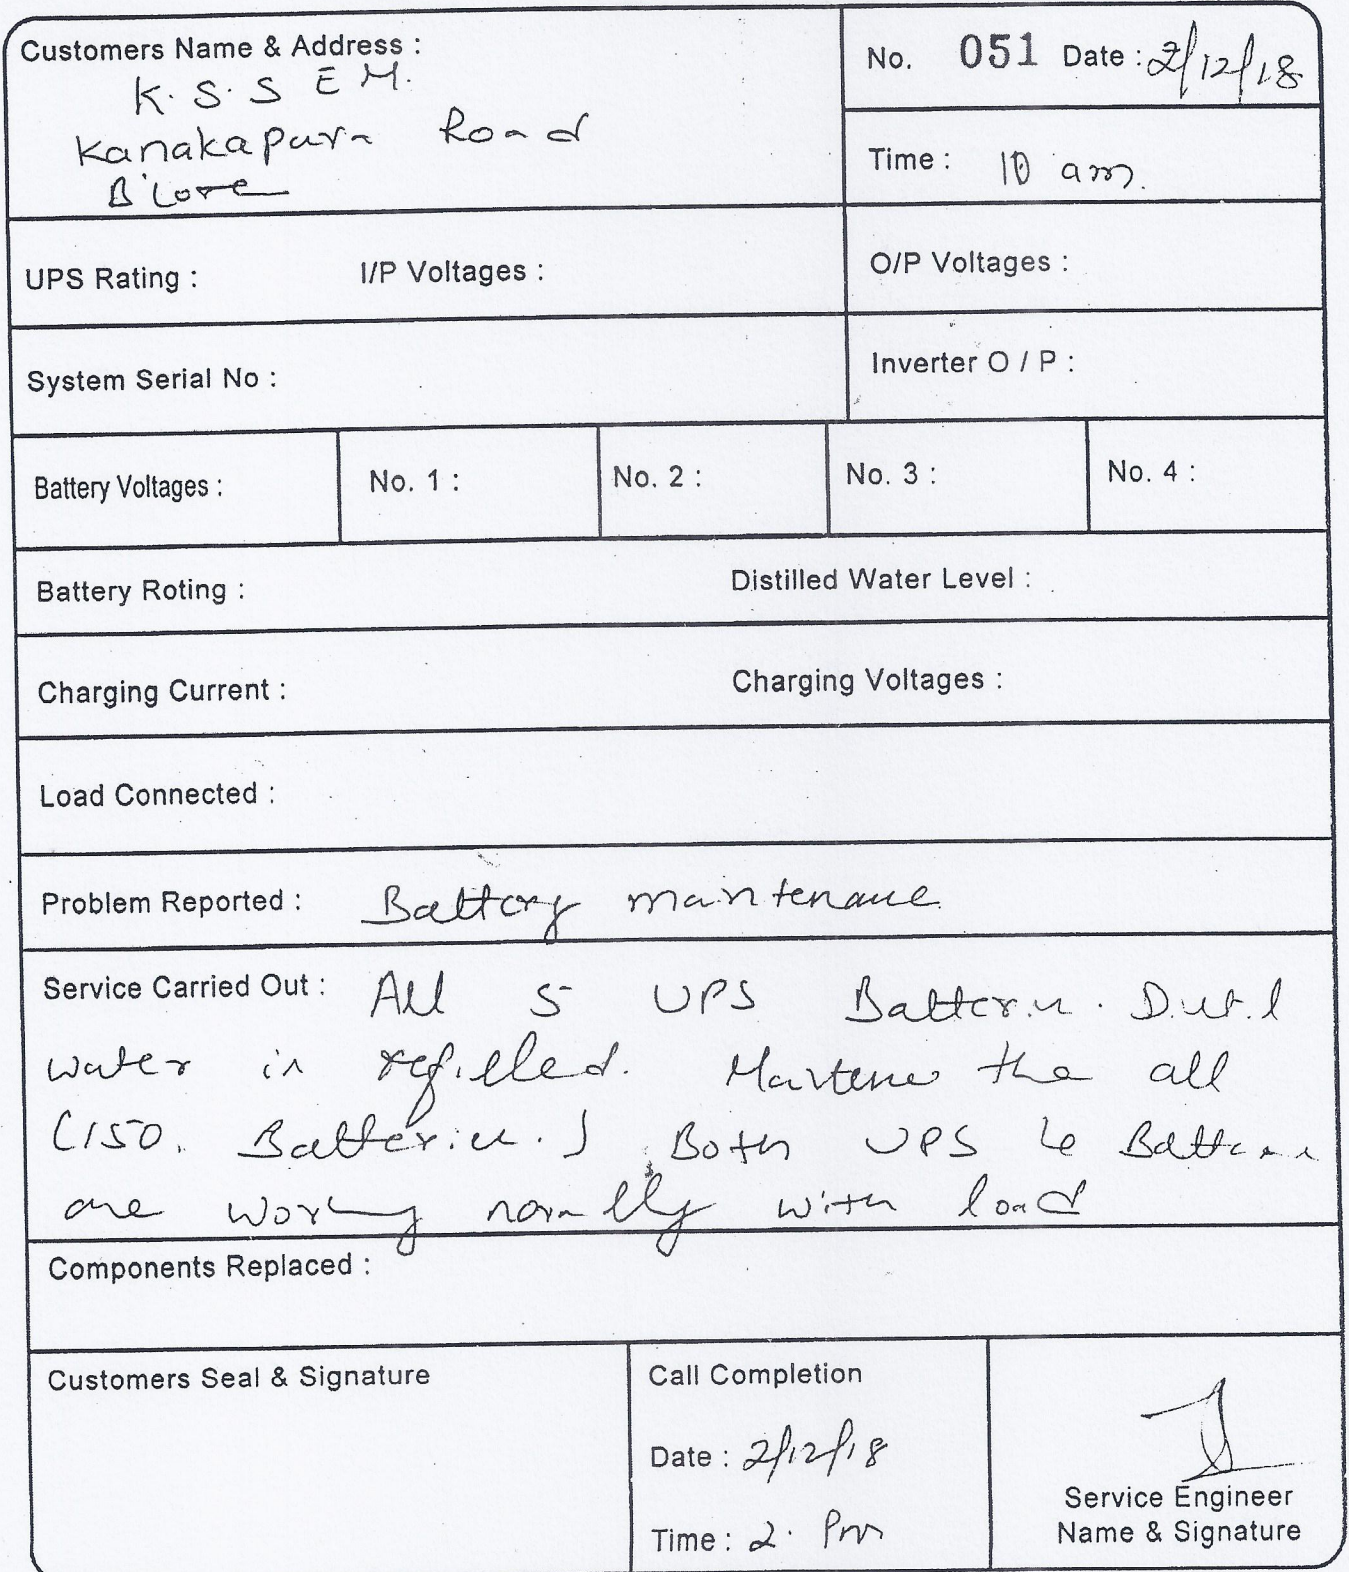 Customers Name & Address :
K.S.S E M.
Kanakapura Road
B'lore
No. 051 Date : 2/12/18
Time : 10 am.
UPS Rating : I/P Voltages : O/P Voltages :
System Serial No : Inverter O / P :
Battery Voltages : No. 1 : No. 2 : No. 3 : No. 4 :
Battery Roting : Distilled Water Level :
Charging Current : Charging Voltages :
Load Connected :
Problem Reported : Battery maintenance
Service Carried Out : All 5 UPS
water is refilled. the all
(150. Batteries.) Both UPS & 
are working normally with load
Components Replaced :
Customers Seal & Signature
Call Completion
Date : 2/12/18
Time : 2. Pm
Service Engineer
Name & Signature